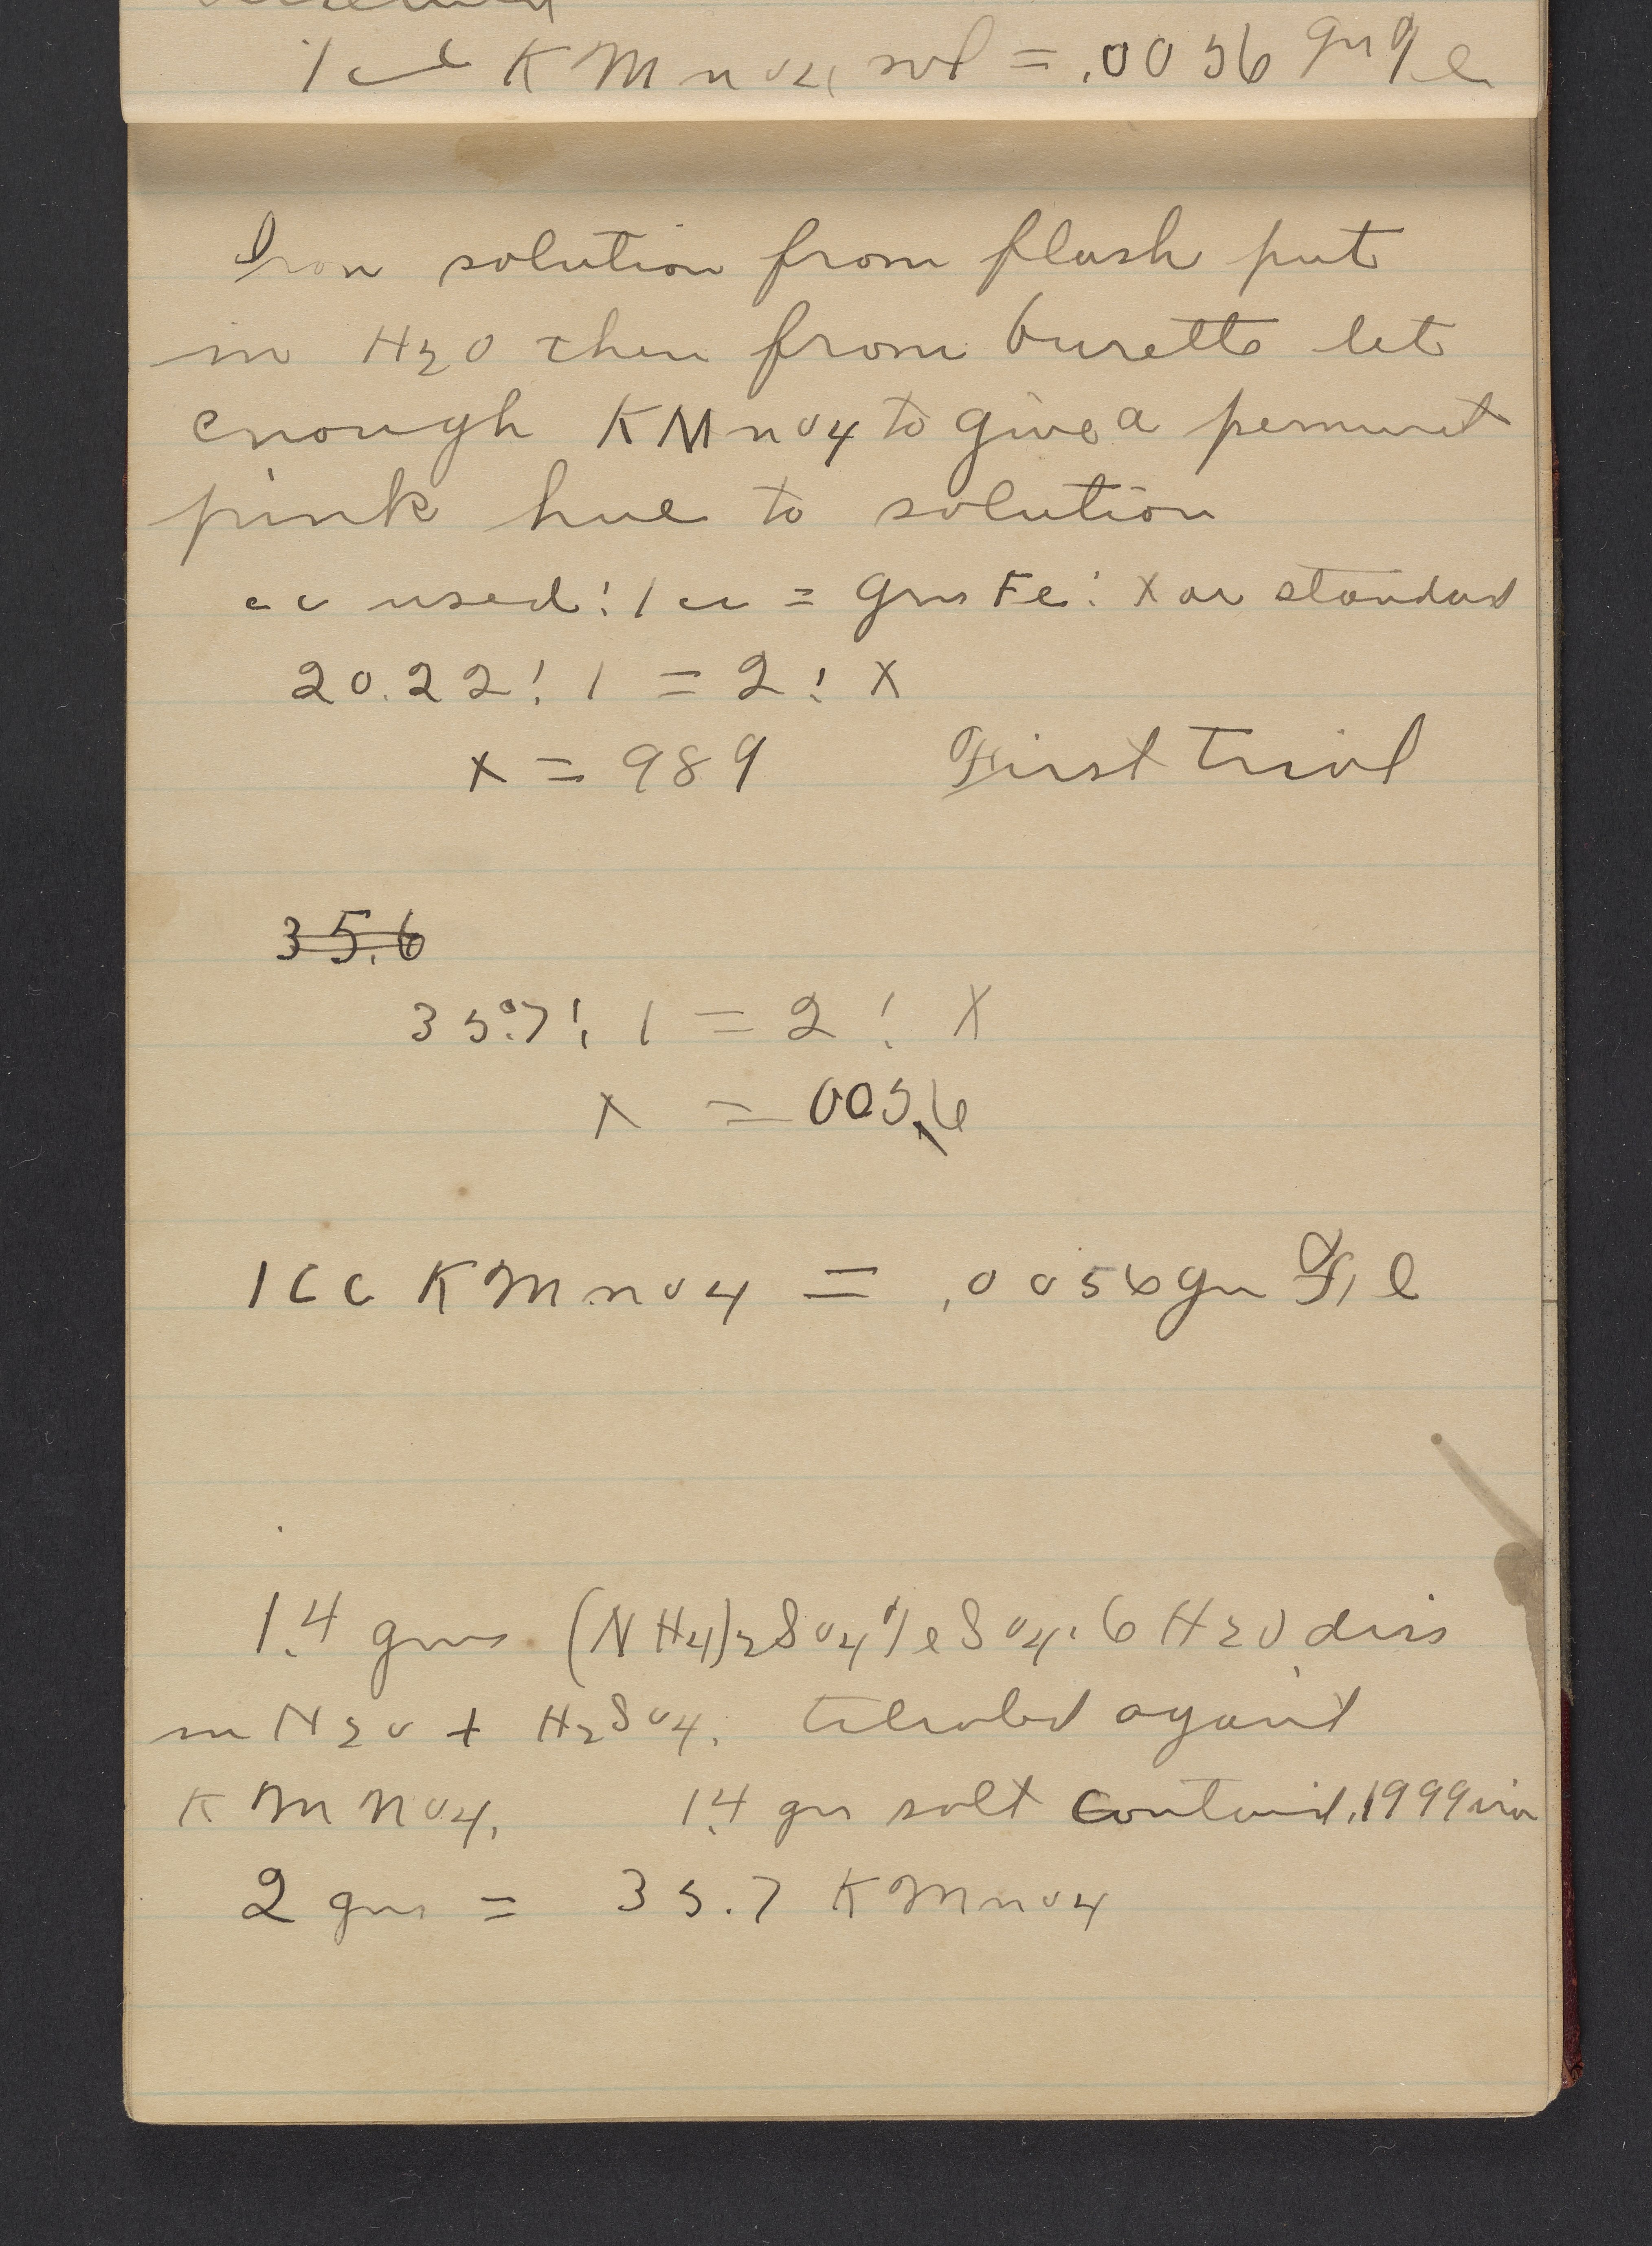 1 cc KMnO4 sol = .0056 gm Fe
Iron solution from flash put
in H2O then from burette let
enough KMnO4 to give a permunet
pink hue to solution
cc used : 1 cc = gms Fe : X or standard
20.22 : 1 = 2 : X
x = 989 First trial
35.6
35.7 : 1 = 2 : X
x = 005.6
1 CC KMnO4 = .0056 gm Fe
1.4 gms (NH4)2SO4 FeSO4.6H2O diss
in H2O + H2SO4. titrated against
KMnO4. 1.4 gm salt contained .1999 iron
2 gms = 35.7 KMnO4